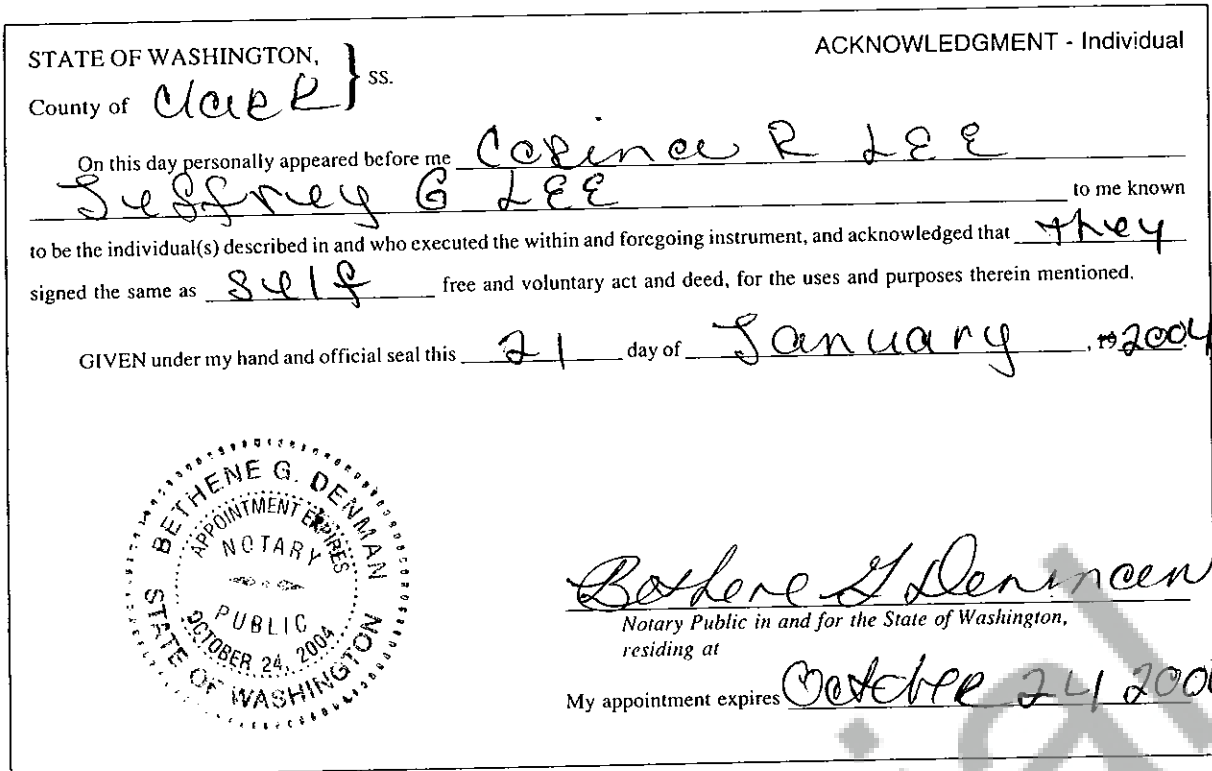 STATE OF WASHINGTON,
ACKNOWLEDGMENT - Individual
County of Clark } ss.
On this day personally appeared before me Corina R LEE
Jeffrey G LEE to me known
to be the individual(s) described in and who executed the within and foregoing instrument, and acknowledged that they
signed the same as self free and voluntary act and deed, for the uses and purposes therein mentioned.
GIVEN under my hand and official seal this 21 day of January, 19 2004
BETHENE G. DENMAN
APPOINTMENT EXPIRES
NOTARY
PUBLIC
OCTOBER 24, 2004
STATE OF WASHINGTON
Bethene G Denman
Notary Public in and for the State of Washington,
residing at
My appointment expires October 24 200